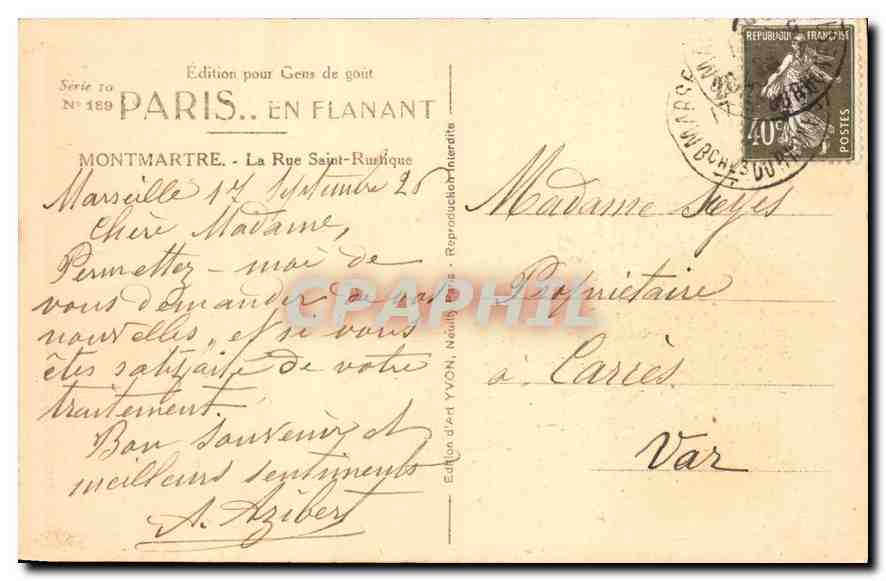 Édition pour Gens de goût
Série 10
N° 189
PARIS.. EN FLANANT
MONTMARTRE. - La Rue Saint-Rustique
Marseille 17 Septembre 26
Chère Madame,
Permettez-moi de
vous demander de vos
nouvelles, et si vous
êtes satisfaite de votre
traitement.
Bon souvenir et
meilleurs sentiments
A. Azibert
Edition d'Art YVON, Neuilly Paris - Reproduction Interdite
REPUBLIQUE FRANÇAISE
40c
POSTES
MARSE
BCHES DU RH
Madame Seyes
Propriétaire
à Carcès
Var
CPAPHIL